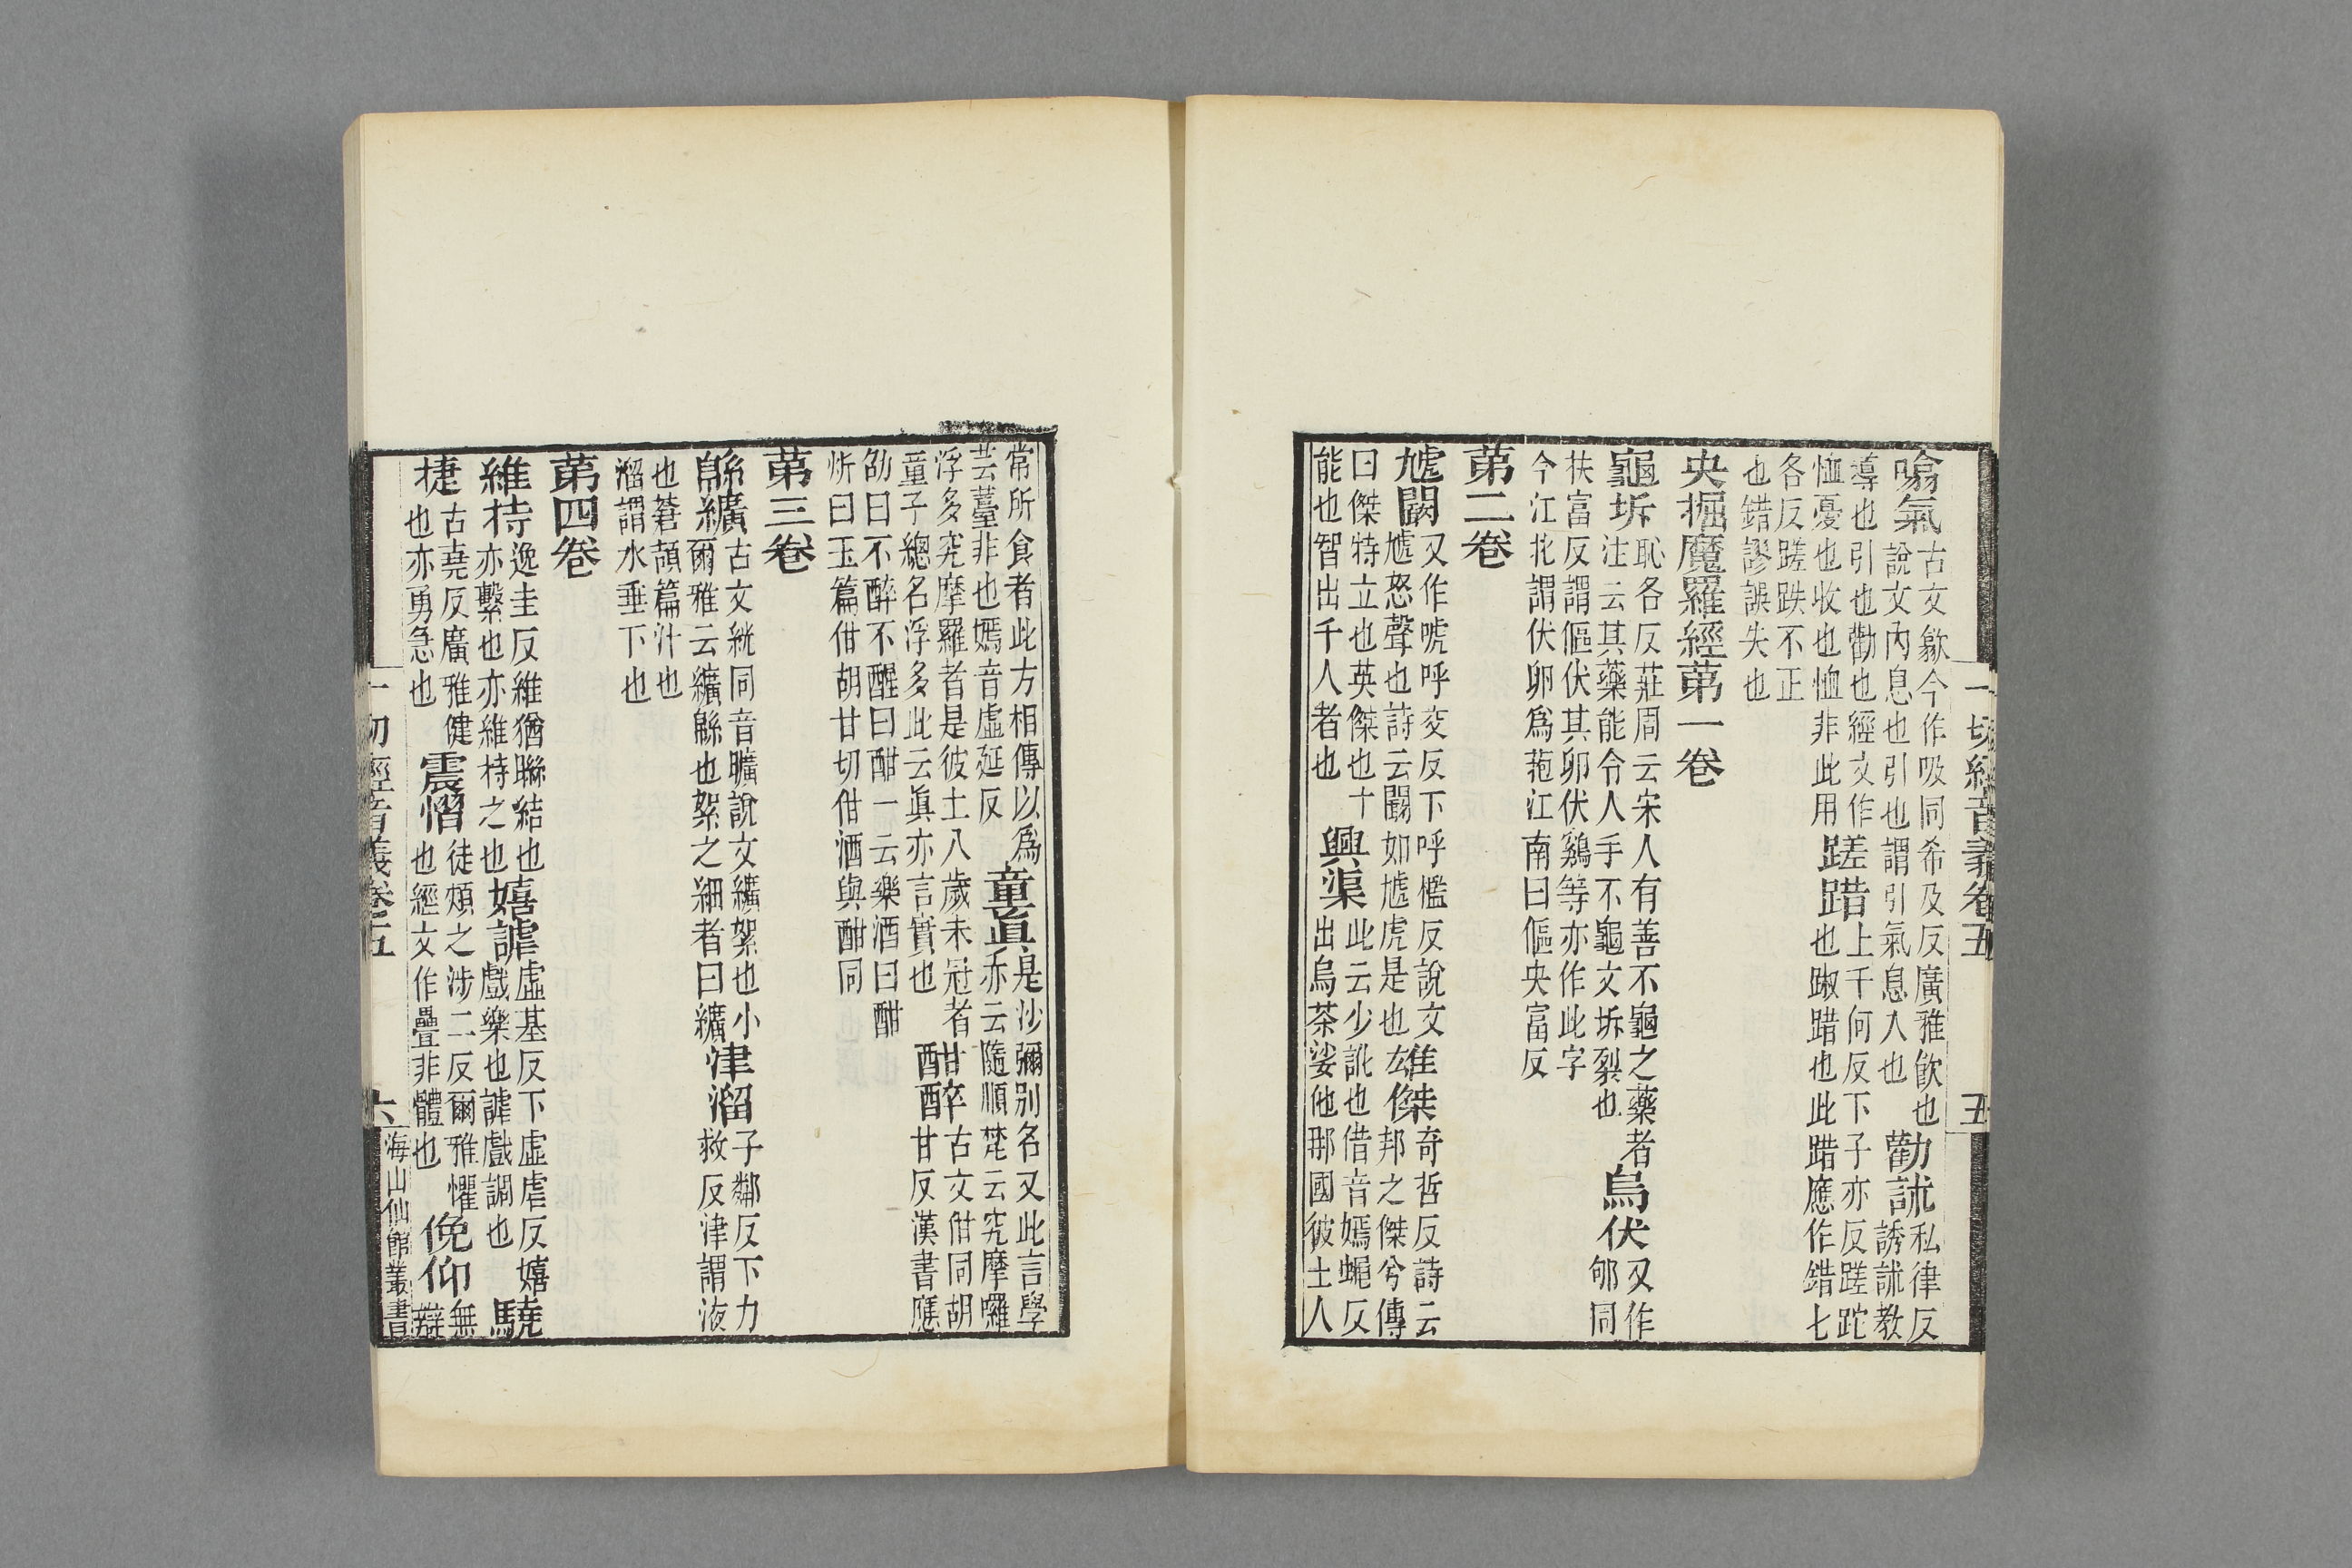 一切經音義卷五
五
噏氣古文歙今作吸同希及反廣雅飮也
說文內息也引也謂引氣息入也
勸訹私律反
誘訹教
導也引也勸也經文作
恤憂也收也恤非此用
蹉踖上千何反下子亦反蹉跎
也踧踖也此踖應作錯七
各反蹉跌不正
也錯謬誤失也
央掘魔羅經苐一卷
龜坼恥各反莊周云宋人有善不龜之藥者
注云其藥能令人手不龜文坼裂也
烏伏又作
䳕同
扶富反謂傴伏其卵伏鷄等亦作此字
今江北謂伏卵爲菢江南曰傴央富反
苐二卷
㙈闞又作唬呼交反下呼檻反說文
㙈怒聲也詩云闞如㙈虎是也
雄傑奇哲反詩云
邦之傑兮傳
曰傑特立也英傑也十
能也智出千人者也
興渠此云少訛也借音嫣蠅反
出烏茶娑他那國彼土人
常所食者此方相傳以爲
芸薹非也嫣音虛延反
童真是沙彌別名又此言學
亦云隨順梵云究摩囉
浮多究摩羅者是彼土八歲未冠者
童子總名浮多此云眞亦言實也
酣醉古文佄同胡
甘反漢書應
劭曰不醉不醒曰酣一云樂酒曰酣
忻曰玉篇佄胡甘切佄酒與酣同
苐三卷
緜纊古文絖同音曠說文纊絮也小
爾雅云纊緜也絮之細者曰纊
津溜子鄰反下力
救反津謂液
也蒼頡篇汁也
溜謂水垂下也
苐四卷
維持逸圭反維猶聯結也
亦繫也亦維持之也
嬉謔虛基反下虛虐反嬉
戲樂也謔戲調也
驍
捷古堯反廣雅健
也亦勇急也
震慴徒頰之涉二反爾雅懼
也經文作疊非體也
俛仰無
辯
一切經音義卷五
六
海山仙館叢書